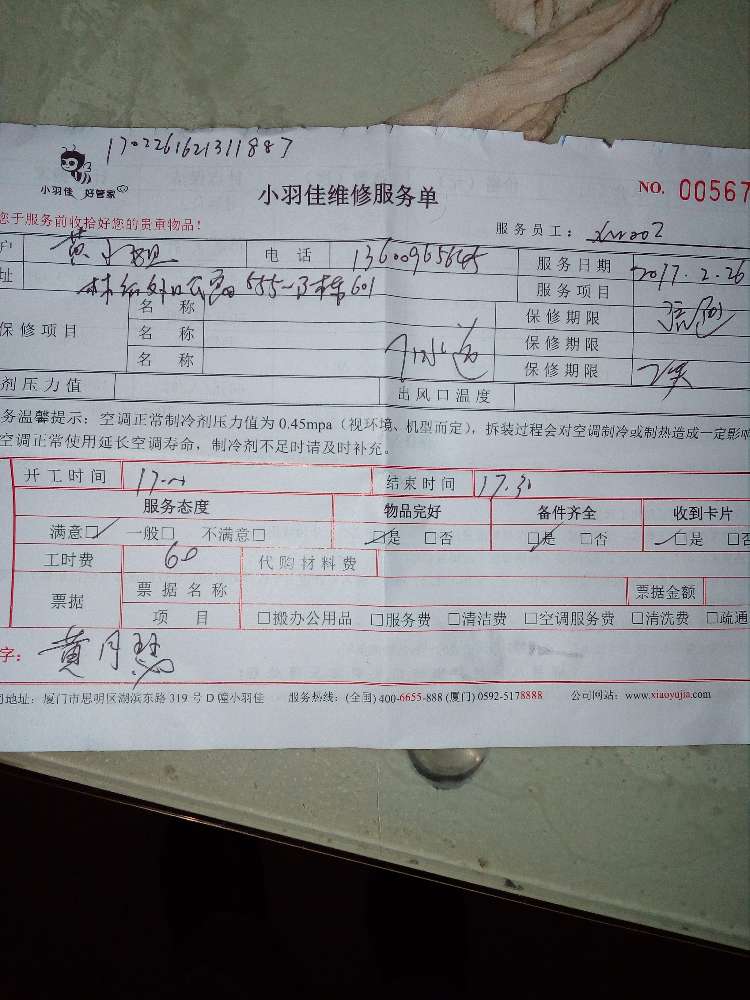 1702261621311887
小羽佳 好管家
小羽佳维修服务单
NO. 00567
您于服务前收拾好您的贵重物品!
服务员工:
户 黄小姐 电话 13600965645 服务日期 2017.2.26
址 555- 601 服务项目
保修项目 名称 保修期限
名称 保修期限
名称 保修期限
剂压力值 出风口温度
务温馨提示:空调正常制冷剂压力值为 0.45mpa(视环境、机型而定),拆装过程会对空调制冷或制热造成一定影响
空调正常使用延长空调寿命,制冷剂不足时请及时补充。
开工时间 结束时间 17.30
服务态度 物品完好 备件齐全 收到卡片
满意□ 一般□ 不满意□ □是 □否 □是 □否 □是 □否
工时费 60 代购材料费
票据 票据名称 票据金额
项目 □搬办公用品 □服务费 □清洁费 □空调服务费 □清洗费 □疏通
字: 黄月
司地址:厦门市思明区湖滨东路 319 号 D 幢小羽佳 服务热线:(全国) 400-6655-888 (厦门) 0592-5178888 公司网站:www.xiaoyujia.com